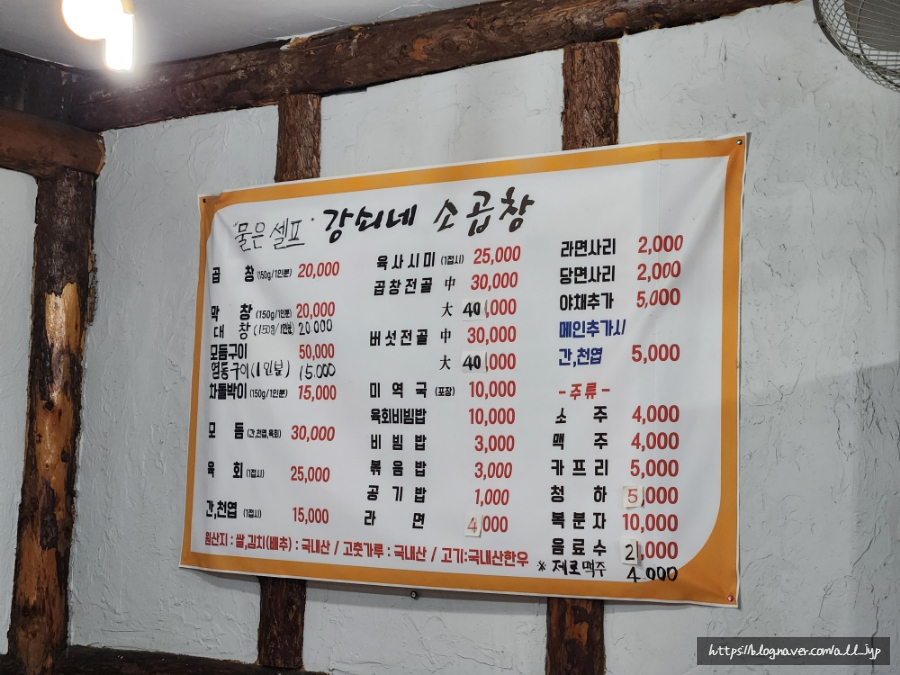 "물은 셀프" 강쇠네 소곱창
곱 창 (150g/1인분) 20,000
막 창 (150g/1인분) 20,000
대 창 (150g/1인분) 20,000
모듬구이 50,000
염통구이 (1인분) 15,000
차돌박이 (150g/1인분) 15,000
모 듬 (간,천엽,육회) 30,000
육 회 (1접시) 25,000
간,천엽 (1접시) 15,000
육사시미 (1접시) 25,000
곱창전골 中 30,000
大 40,000
버섯전골 中 30,000
大 40,000
미 역 국 (포장) 10,000
육회비빔밥 10,000
비 빔 밥 3,000
볶 음 밥 3,000
공 기 밥 1,000
라 면 4,000
라면사리 2,000
당면사리 2,000
야채추가 5,000
메인추가시
간,천엽 5,000
- 주류 -
소 주 4,000
맥 주 4,000
카 프 리 5,000
청 하 5,000
복 분 자 10,000
음 료 수 2,000
※ 제로맥주 4,000
원산지 : 쌀,김치(배추) : 국내산 / 고춧가루 : 국내산 / 고기:국내산한우
https://blog.naver.com/all_iyp